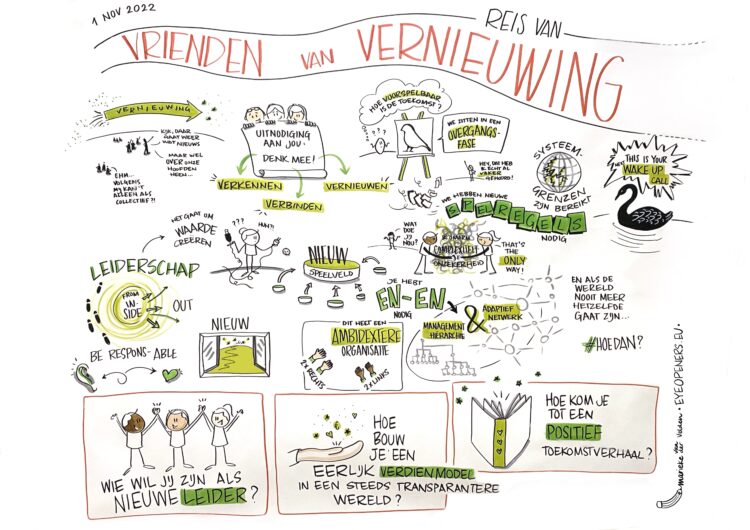 1 NOV 2022
REIS VAN
VRIENDEN VAN VERNIEUWING
VERNIEUWING
KIJK, DAAR
GAAT WEER
WAT NIEUWS
MAAR WEL
OVER ONZE
HOOFDEN
HEEN...
EHM...
VOLGENS
MY KAN'T
ALLEEN ALS
COLLECTIEF?!
UITNODIGING
AAN JOU:
DENK MEE!
VERKENNEN
VERBINDEN
VERNIEUWEN
HOE VOORSPELBAAR
IS DE TOEKOMST?
???
WE ZITTEN IN EEN
OVERGANGS-
FASE
HEY, DAT HEB
IK ECHT AL
VAKER
GEHOORD!
SYSTEEM-
GRENZEN
ZIJN BEREIKT
THIS IS YOUR
WAKE UP
CALL
WE HEBBEN NIEUWE
SPELREGELS
NODIG
HET GAAT OM
WAARDE
CREËREN
???
HUH?!
WAT
DOE JIJ
NOU?
COMPLEXITEIT
ONZEKERHEID
THAT'S
THE
ONLY
WAY!
LEIDERSCHAP
FROM
IN-
SIDE
OUT
BE RESPONS-ABLE
NIEUW
SPEELVELD
NIEUW
JE HEBT
EN-EN
NODIG
DIT HEET EEN
AMBIDEXTERE
ORGANISATIE
2x RECHTS
2x LINKS
MANAGEMENT
HIËRARCHIE
&
ADAPTIEF
NETWERK
EN ALS DE
WERELD
NOOIT MEER
HETZELFDE
GAAT ZIJN...
#HOEDAN?
WIE WIL JIJ ZIJN ALS
NIEUWE LEIDER?
HOE
BOUW
JE EEN
EERLIJK VERDIENMODEL
IN EEN STEEDS TRANSPARANTERE
WERELD?
HOE KOM JE
TOT EEN
POSITIEF
TOEKOMSTVERHAAL?
EYEOPENERS.EU